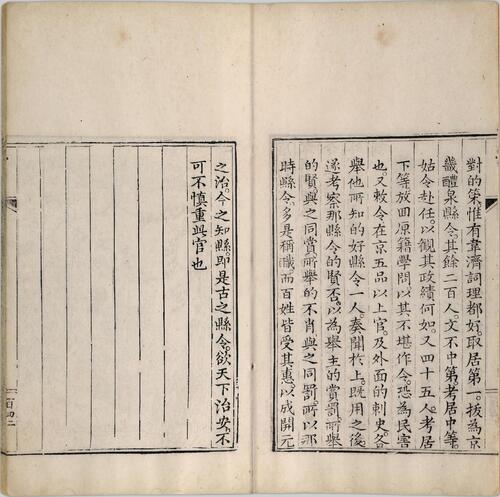 對的策惟有韋濟詞理都好取居第一拔為京
畿醴泉縣令其餘二百人文不中第考居中等
姑令赴任以觀其政績何如又四十五人考居
下等放回原籍學問以其不堪作令恐為民害
也又敕令在京五品以上官及外面的刺史各
舉他所知的好縣令一人奏聞於上既用之後
遂考察那縣令的賢否以為舉主的賞罰所舉
的賢與之同賞所舉的不肖與之同罰所以那
時縣令多是稱職而百姓皆受其惠以成開元
之治今之知縣即是古之縣令欲天下治安不
可不慎重此官也
百四二